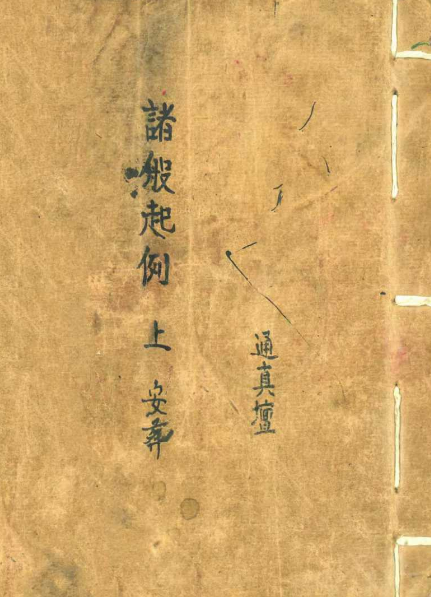 通真壇
諸般起例 上 安葬